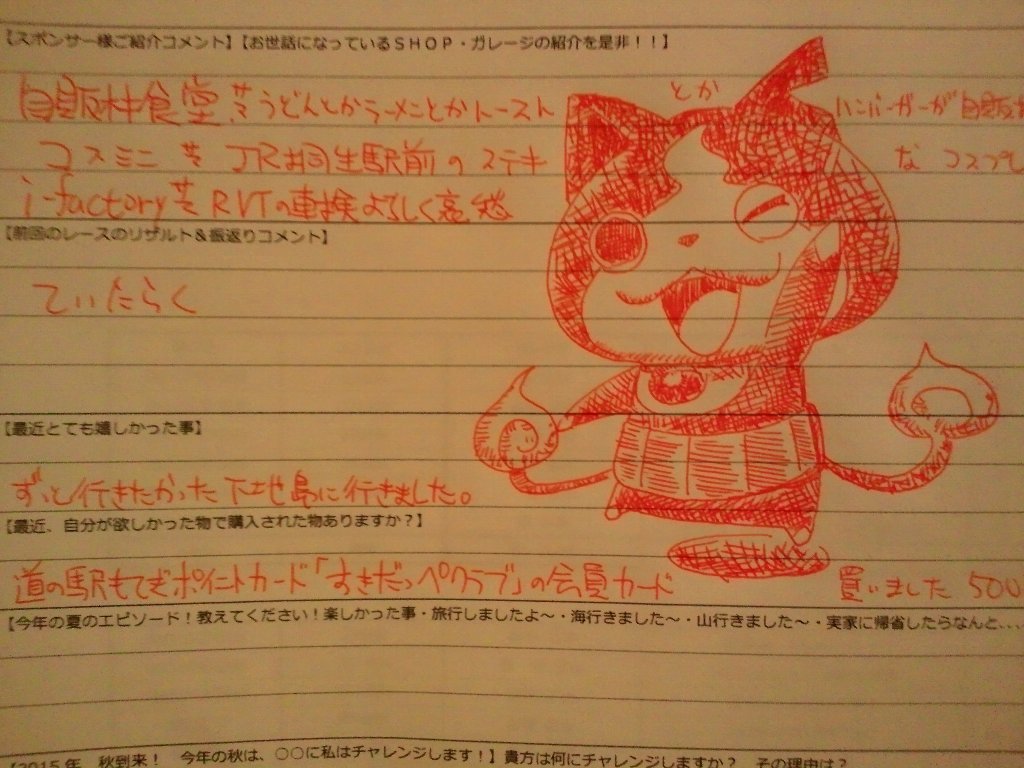 【スポンサー様ご紹介コメント】【お世話になっているSHOP・ガレージの紹介を是非！！】
自販機食堂 サマ うどんとかラーメンとかトースト とか ハンバーガーが自販
コスミニ サマ JR 駅前のステキ な コスプレ
i-factory サマ RVTの車検よろしく哀愁
【前回のレースのリザルト＆振返りコメント】
ていたらく
【最近とても嬉しかった事】
ずっと行きたかった下地島に行きました。
【最近、自分が欲しかった物で購入された物ありますか？】
道の駅もてぎポイントカード「すきだっペクラブ」の会員カード 買いました 500
【今年の夏のエピソード！教えてください！楽しかった事・旅行しましたよ～・海行きました～・山行きました～・実家に帰省したらなんと...
【2015年 秋到来！ 今年の秋は、○○に私はチャレンジします！】貴方は何にチャレンジしますか？ その理由は？